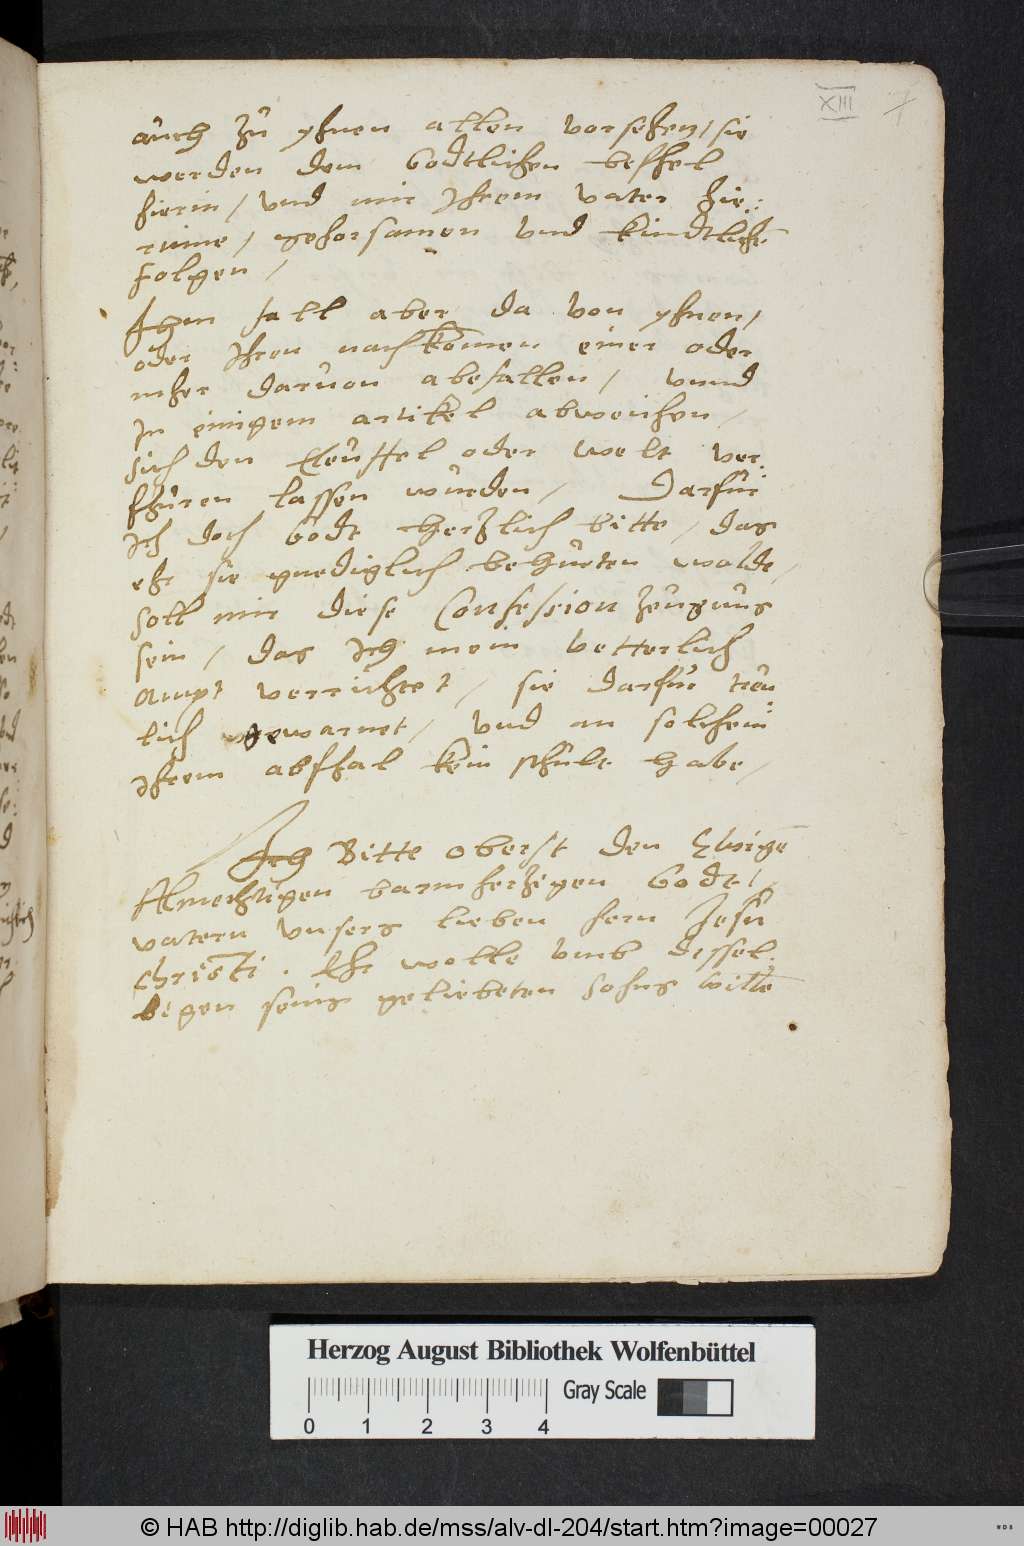 XIII 7
auch zu yhnen allen vorsehen, sie
werden dem Godtlichen beffhel
hierin, vnd mir Ihrem vater hie:
rinne, gehorsamen vnd kindtliche
folgen,
Ihm fall aber da von yhnen,
oder Ihren nachkomen einer oder
mher daruon abefallen, vnnd
In einigem artikel abweichen,
sich den Teuffel oder welt ver:
fhuren lassen wurden, Darfur
Ich doch Godt hertzlich bitte, das
ehr sie gnediglich behueten wolde,
soll mir diese Confession zeugnus
sein, das Ich mein vetterlich
ampt verrichtet, sie darfur treu
lich gewarnet, vnd an solchem
Ihrem abfhal kein schult habe,
Ich Bitte oberst den Ewige
Almechtigen barmhertzigen Godt,
vatern vnsers lieben hern Jesu
christi. Ehr wolle vmb dessel:
bigen seins geliebeten sohns wille
Herzog August Bibliothek Wolfenbüttel
Gray Scale
0 1 2 3 4
© HAB http://diglib.hab.de/mss/alv-dl-204/start.htm?image=00027